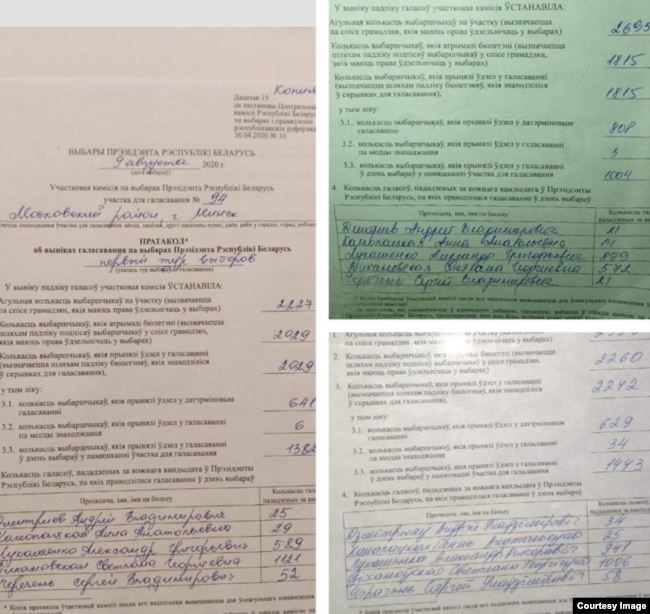 Копия
Дадатак 15
да пастановы Цэнтральнай
камісіі Рэспублікі Беларусь
па выбарах і правядзенні
рэспубліканскіх рэферэндумаў
20.04.2020 № 10
ВЫБАРЫ ПРЭЗІДЭНТА РЭСПУБЛІКІ БЕЛАРУСЬ
9 августа 2020 г.
Участковая камісія па выбарах Прэзідэнта Рэспублікі Беларусь
участка для галасавання № 94
Московский район, г. Минск
ПРАТАКОЛ*
аб выніках галасавання па выбарах Прэзідэнта Рэспублікі Беларусь
первый тур выборов
У выніку падліку галасоў участковая камісія ЎСТАНАВІЛА:
Агульная колькасць выбаршчыкаў на ўчастку (вызначаецца
па спісе грамадзян, якія маюць права ўдзельнічаць у выбарах) 2227
Колькасць выбаршчыкаў, якія атрымалі бюлетэні (вызначаецца
шляхам падліку подпісаў выбаршчыкаў у спісе грамадзян,
якія маюць права ўдзельнічаць у выбарах) 2029
Колькасць выбаршчыкаў, якія прынялі ўдзел у галасаванні
(вызначаецца шляхам падліку бюлетэняў, якія знаходзіліся
ў скрынках для галасавання), 2029
у тым ліку:
3.1. колькасць выбаршчыкаў, якія прынялі ўдзел у датэрміновым
галасаванні 641
3.2. колькасць выбаршчыкаў, якія прынялі ўдзел у галасаванні
па месцы знаходжання 6
3.3. колькасць выбаршчыкаў, якія прынялі ўдзел у галасаванні
ў дзень выбараў у памяшканні ўчастка для галасавання 1382
Колькасць галасоў, пададзеных за кожнага кандыдата ў Прэзідэнты
Рэспублікі Беларусь, па якіх праводзілася галасаванне ў дзень выбараў
Прозвішча, імя, імя па бацьку
Дмитриев Андрей Владимирович 25
Канопацкая Анна Анатольевна 29
Лукашенко Александр Григорьевич 589
Тихановская Светлана Георгиевна
Черечень Сергей Владимирович 52
У выніку падліку галасоў участковая камісія ЎСТАНАВІЛА:
Агульная колькасць выбаршчыкаў на ўчастку (вызначаецца
па спісе грамадзян, якія маюць права ўдзельнічаць у выбарах) 2695
Колькасць выбаршчыкаў, якія атрымалі бюлетэні (вызначаецца
шляхам падліку подпісаў выбаршчыкаў у спісе грамадзян,
якія маюць права ўдзельнічаць у выбарах) 1815
Колькасць выбаршчыкаў, якія прынялі ўдзел у галасаванні
(вызначаецца шляхам падліку бюлетэняў, якія знаходзіліся
ў скрынках для галасавання), 1815
у тым ліку:
3.1. колькасць выбаршчыкаў, якія прынялі ўдзел у датэрміновым
галасаванні 808
3.2. колькасць выбаршчыкаў, якія прынялі ўдзел у галасаванні
па месцы знаходжання 3
3.3. колькасць выбаршчыкаў, якія прынялі ўдзел у галасаванні
ў дзень выбараў у памяшканні ўчастка для галасавання 1004
4. Колькасць галасоў, пададзеных за кожнага кандыдата ў Прэзідэнты
Рэспублікі Беларусь, па якіх праводзілася галасаванне ў дзень выбараў
Прозвішча, імя, імя па бацьку
Андрей Владимирович 21
Канопацкая Анна Анатольевна
Лукашенко Александр Григорьевич
Тихановская Светлана Георгиевна 572
Черечень Сергей Владимирович 21
Агульная колькасць выбаршчыкаў на ўчастку (вызначаецца
па спісе грамадзян, якія маюць права ўдзельнічаць у выбарах)
2. Колькасць выбаршчыкаў, якія атрымалі бюлетэні (вызначаецца
шляхам падліку подпісаў выбаршчыкаў у спісе грамадзян,
якія маюць права ўдзельнічаць у выбарах) 2260
3. Колькасць выбаршчыкаў, якія прынялі ўдзел у галасаванні
(вызначаецца шляхам падліку бюлетэняў, якія знаходзіліся
ў скрынках для галасавання), 2242
у тым ліку:
3.1. колькасць выбаршчыкаў, якія прынялі ўдзел у датэрміновым
галасаванні 629
3.2. колькасць выбаршчыкаў, якія прынялі ўдзел у галасаванні
па месцы знаходжання 34
3.3. колькасць выбаршчыкаў, якія прынялі ўдзел у галасаванні
ў дзень выбараў у памяшканні ўчастка для галасавання
4. Колькасць галасоў, пададзеных за кожнага кандыдата ў Прэзідэнты
Рэспублікі Беларусь, па якіх праводзілася галасаванне ў дзень выбараў
Прозвішча, імя, імя па бацьку
Андрэй Уладзіміравіч 34
Ганна Анатольеўна 25
941
Святлана Георгіеўна 1096
Сяргей Уладзіміравіч 58
Courtesy Image